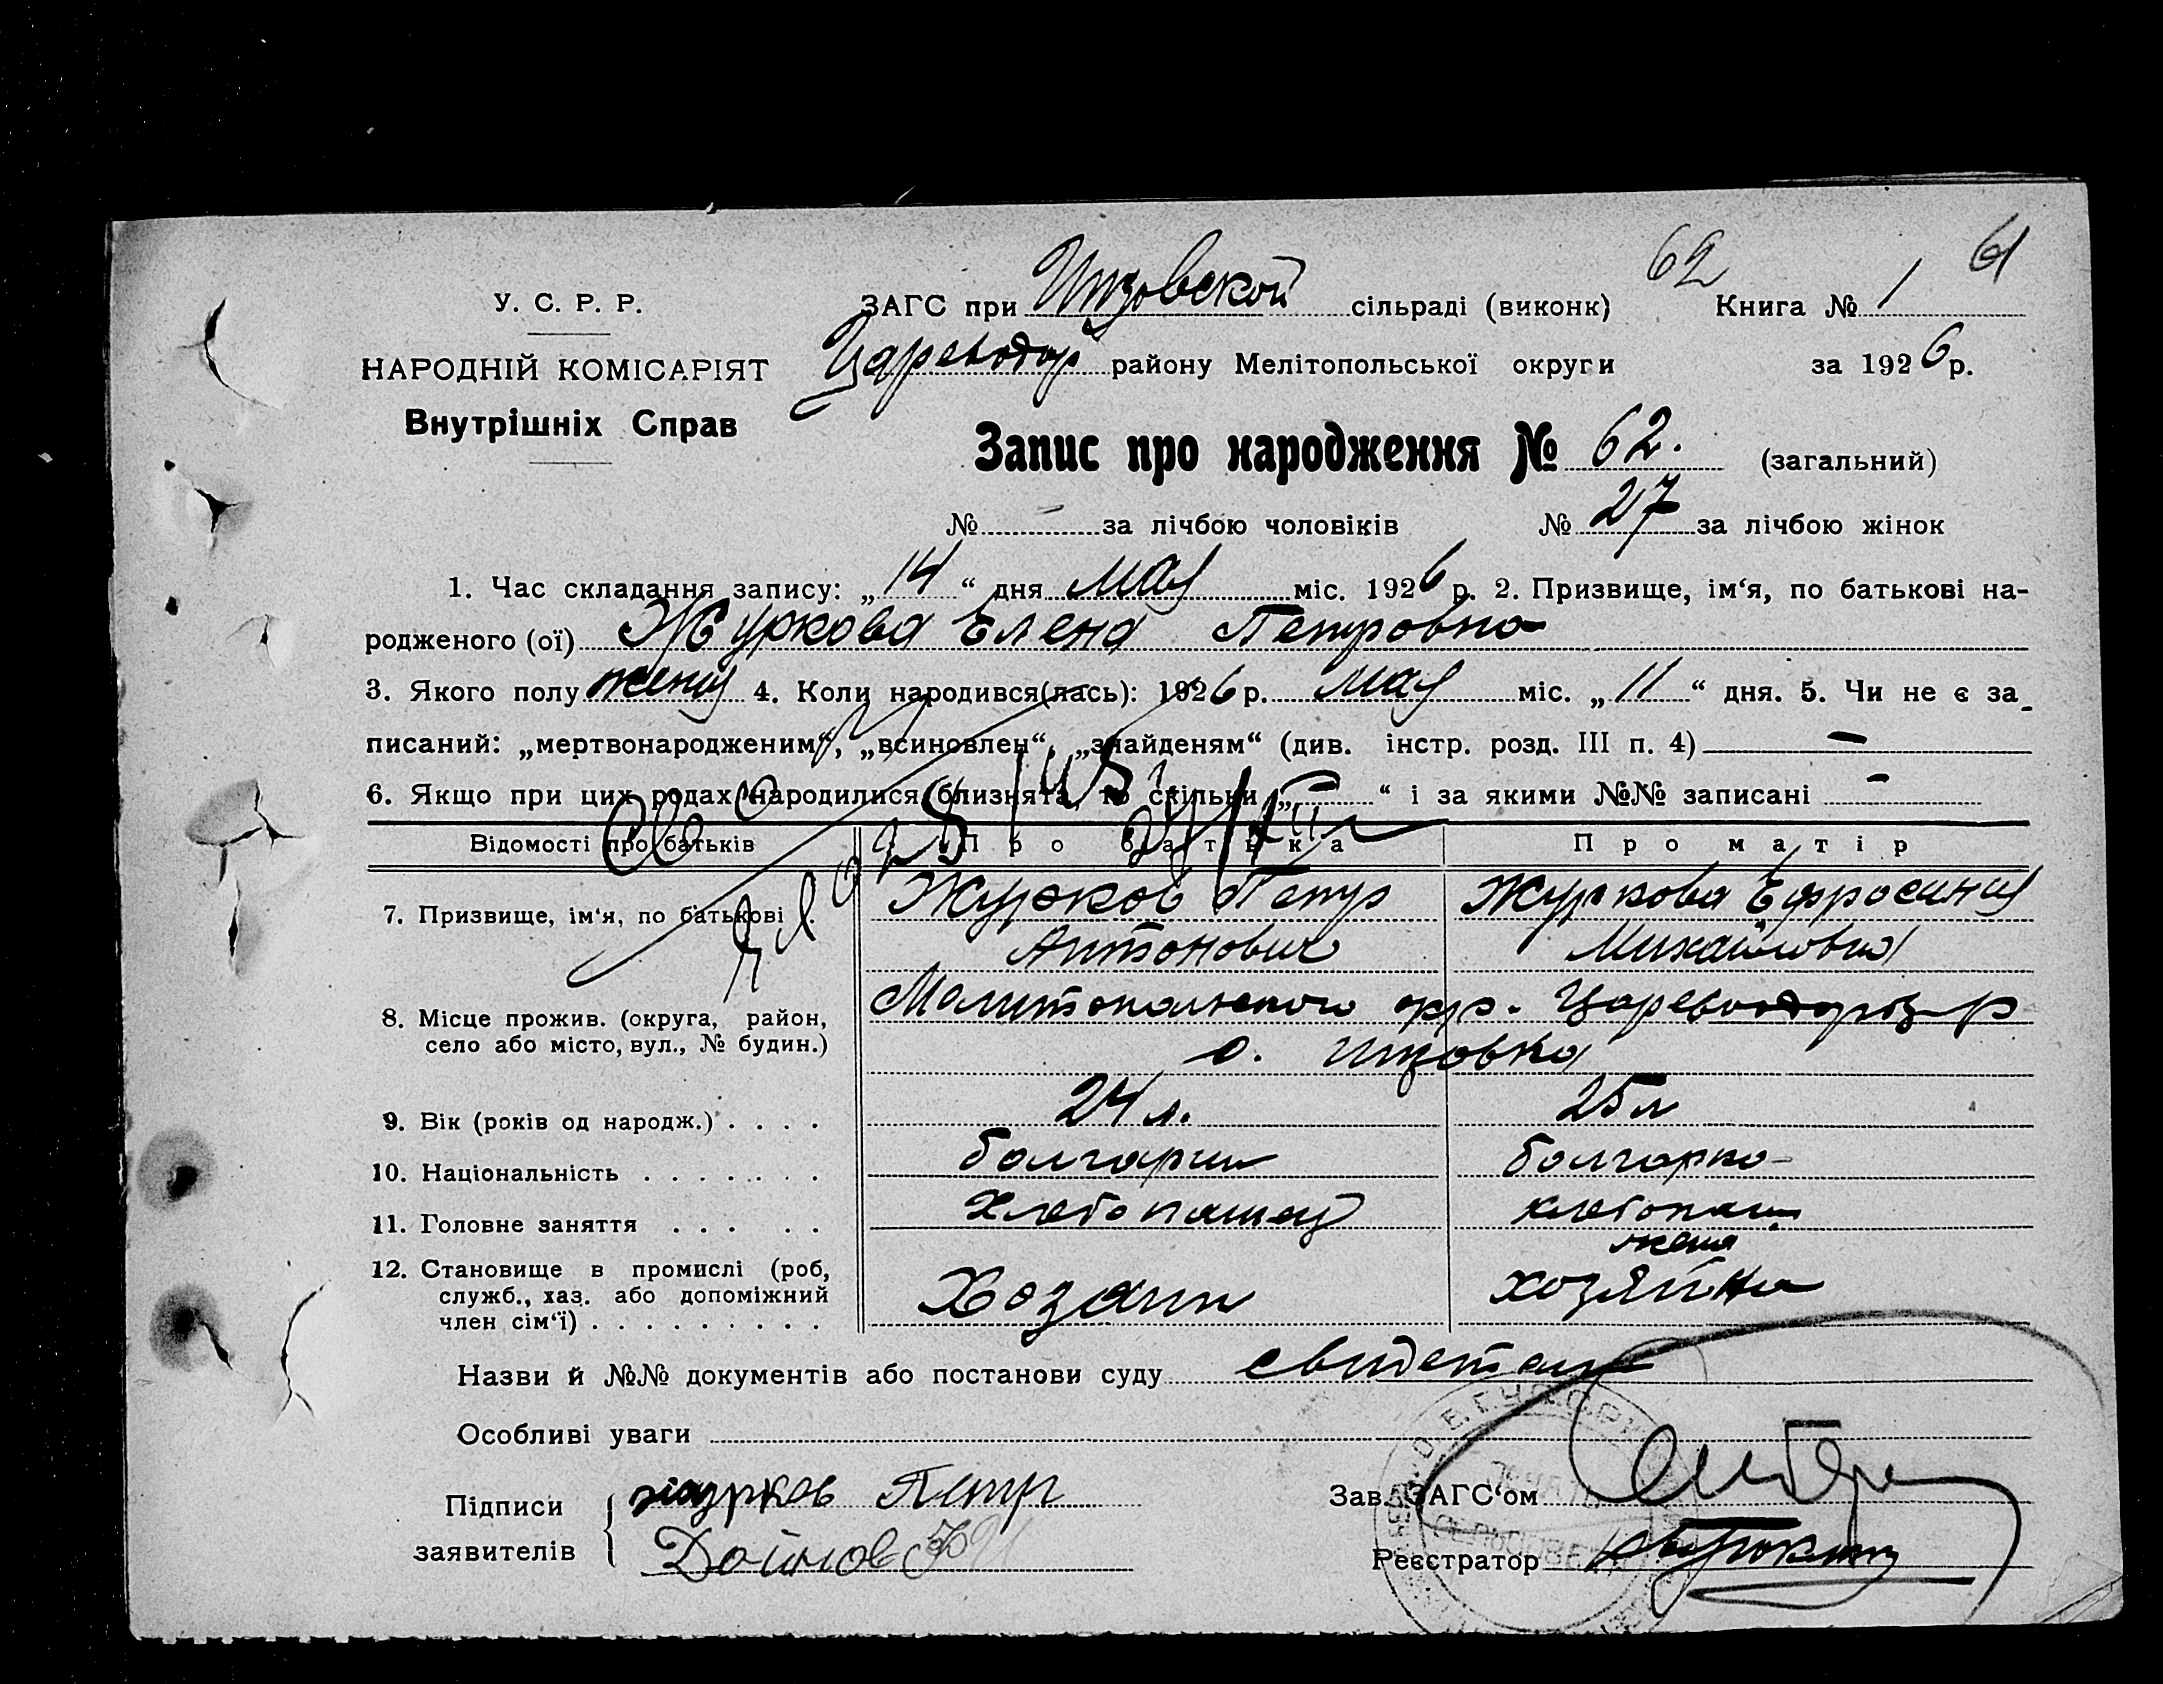 62 61
У. С. Р. Р. ЗАГС при Инзовской сільраді (виконк) Книга № 1
НАРОДНІЙ КОМІСАРІЯТ Цареводар району Мелітопольської округи за 1926 р.
Внутрішніх Справ
Запис про народження № 62. (загальний)
№ — за лічбою чоловіків № 27 за лічбою жінок
1. Час складання запису: „14“ дня мая міс. 1926 р. 2. Призвище, ім‘я, по батькові на-
родженого (ої) Журкова Елена Петровна
3. Якого полу 4. Коли народився(лась): 1926 р. мая міс. „11“ дня. 5. Чи не є за-
писаний: „мертвонародженим“, „всиновлен“, „знайденям“ (див. інстр. розд. III п. 4) —
6. Якщо при цих родах народилися близнята, то скільки „ “ і за якими №№ записані —
Відомості про батьків Про батька Про матір
7. Призвище, ім‘я, по батькові . Журков Петр Журкова Ефросиния
Антонович Михайловна
8. Місце прожив. (округа, район, село або місто, вул., № будин.) Мелитопольского окр. Цареводар р
с. Инзовка
9. Вік (років од народж.) . . . . 24 л. 25 л
10. Національність . . . . . . . болгарин болгарка
11. Головне заняття . . . . . Хлебопашец хлебопаш
жена
12. Становище в промислі (роб, служб., хаз. або допоміжний член сім‘ї) . . . . . . . . . Хозяин хозяина
Назви й №№ документів або постанови суду
Особливі уваги
Підписи заявителів Журков Петр
Дойнов
Зав. ЗАГС‘ом
Реєстратор